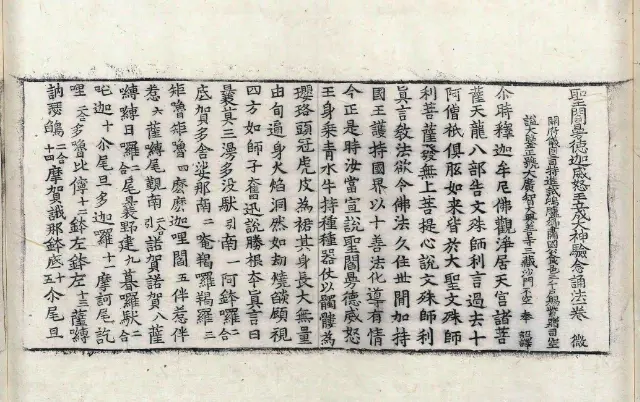 聖閻曼德迦威怒王立成大神驗念誦法卷 微
開府儀同三司特進試鴻臚卿肅國公食邑三千戶賜紫贈司空
謚大鑒正號大廣智大興善寺三藏沙門不空奉 詔譯
尒時釋迦牟尼佛觀淨居天宮諸菩
薩天龍八部告文殊師利言過去十
阿僧祇俱胝如来皆於大聖文殊師
利菩薩發無上菩提心說文殊師利
真言教法欲令佛法久住世間加持
國王護持國界以十善法化導有情
今正是時汝當宣說聖閻曼德威怒
王身乘青水牛持種種器仗以髑髏為
瓔珞頭冠虎皮為裙其身長大無量
由旬遍身火焰洞然如劫燒焰顧視
四方如師子奮迅說勝根本真言曰
曩莫三漫多没馱引南一阿鉢囉二合
底賀多舍娑那南二唵羯囉羯囉三
矩嚕矩嚕四麽麽迦哩閻五伴惹伴
惹六薩嚩尾覲南二合諾賀諾賀八薩
嚩嚩日囉二合尾曩野建九暮囉馱二合
吒迦十尒尾旦多迦囉十一摩訶尾訖
哩二合多嚕比傳十二鉢左鉢左十三薩嚩
訥瑟鵮二合十四摩賀誐那鉢底十五尒尾旦